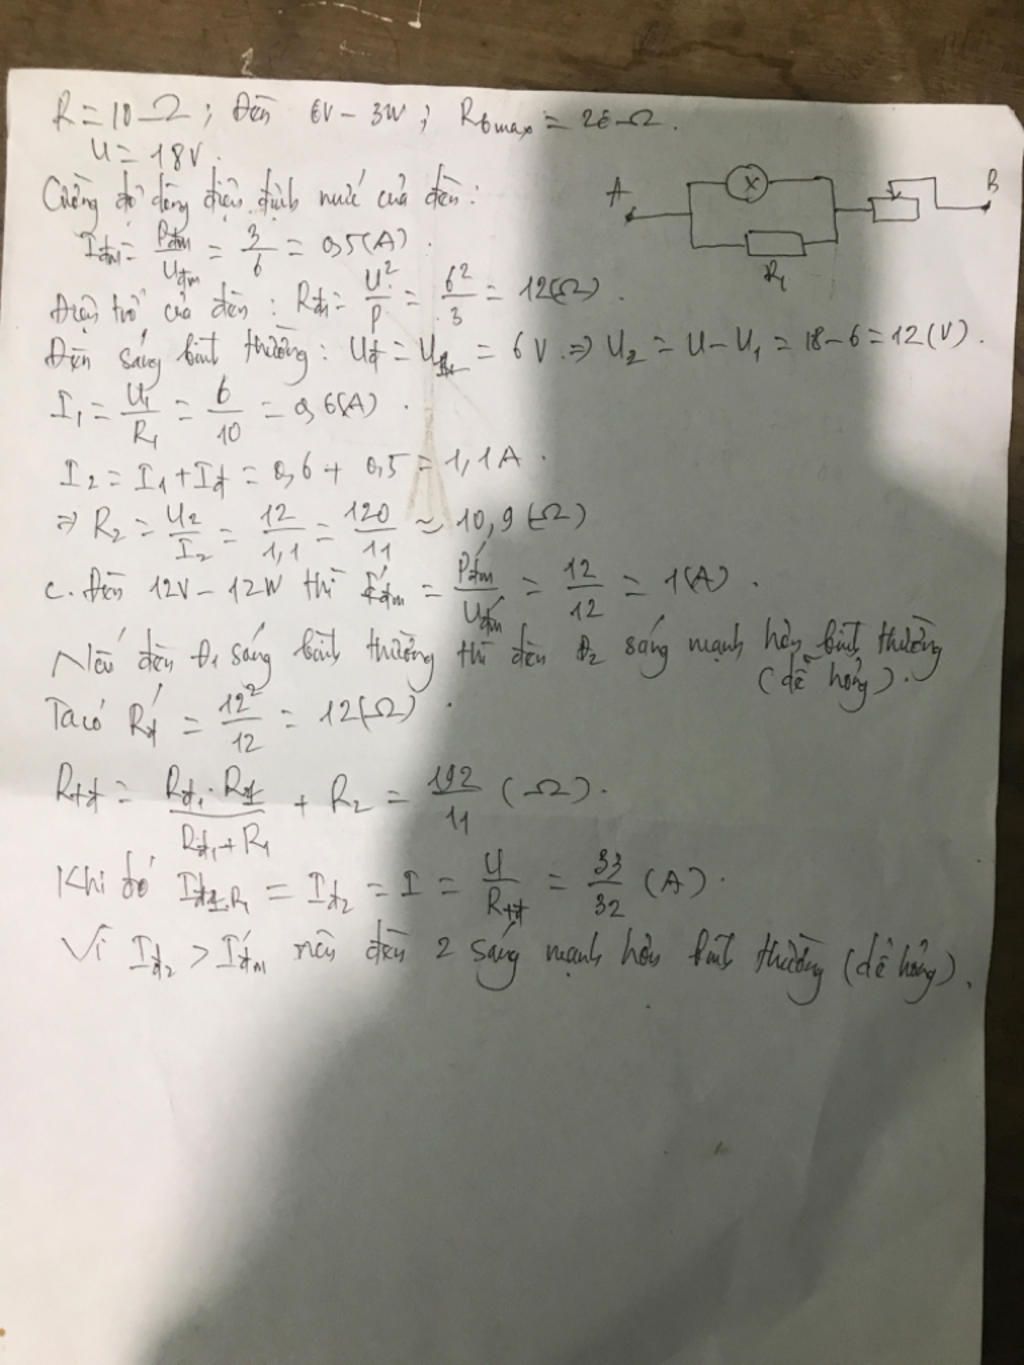 R = 10 Ω ; Đèn 6V - 3W ; Rbmax = 26 Ω.
U = 18V.
Cường độ dòng điện định mức của đèn:
Iđm = Pđm/Uđm = 3/6 = 0,5(A).
Điện trở của đèn: Rđ1 = U²/P = 6²/3 = 12(Ω).
Đèn sáng bình thường: Uđ = U = 6V. ⇒ U2 = U - U1 = 18 - 6 = 12(V).
I1 = U1/R1 = 6/10 = 0,6(A).
I2 = I1 + Iđ = 0,6 + 0,5 = 1,1A.
⇒ R2 = U2/I2 = 12/1,1 = 120/11 ~ 10,9(Ω)
c. Đèn 12V - 12W thì I'đm = P'đm/U'đm = 12/12 = 1(A).
Nếu đèn Đ1 sáng bình thường thì đèn Đ2 sáng mạnh hơn bình thường
(dễ hỏng).
Ta có R'đ = 12²/12 = 12(Ω).
Rtđ = Rđ1.R1/Rđ1+R1 + R2 = 192/11 (Ω).
Khi đó Iđ1.R1 = Iđ2 = I = U/Rtđ = 33/32 (A).
Vì Iđ2 > I'đm nên đèn 2 sáng mạnh hơn bình thường (dễ hỏng).
A
X
B
R1